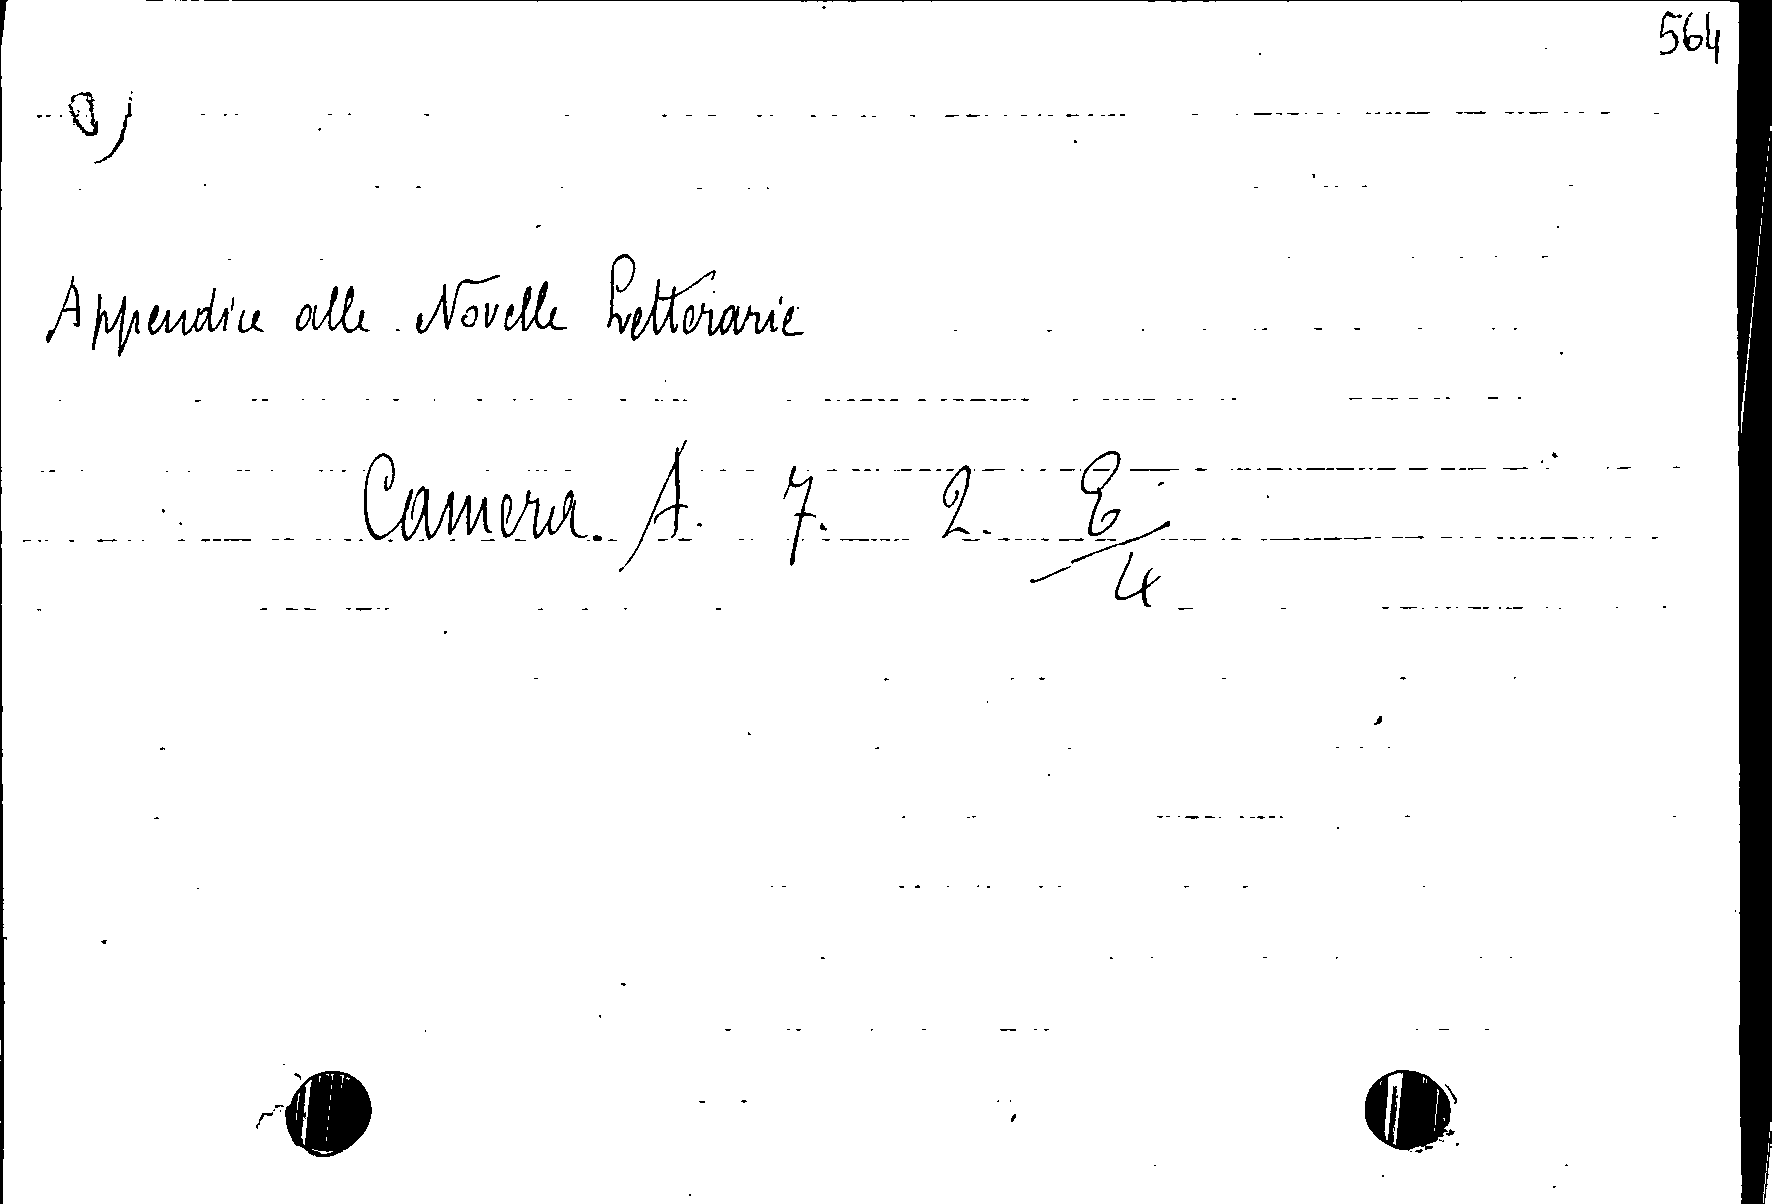 564
a)
Appendice alle Novelle Letterarie
Camera. A. 7. 2. E/4